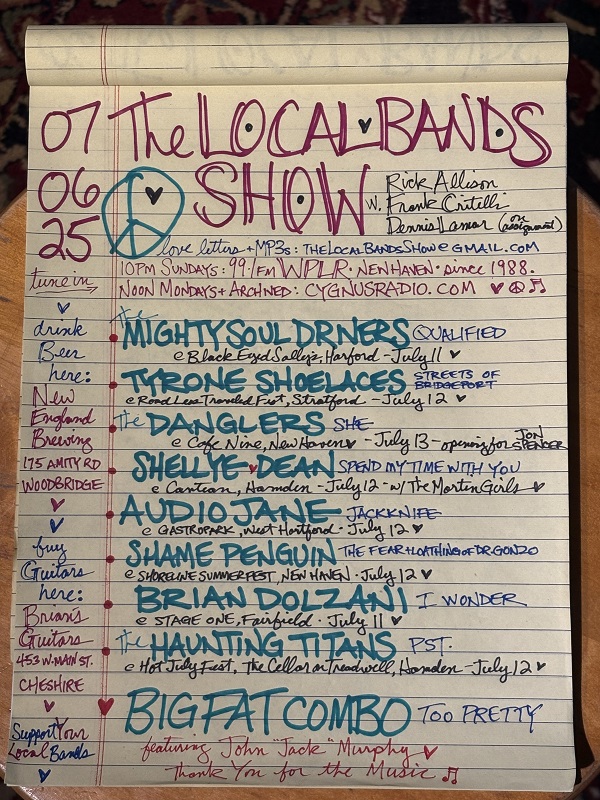 07 The LOCAL BANDS
06 SHOW w. Rick Allison
Frank Critelli
Dennis Lamar (on assignment)
25
love letters + MP3s: THELOCALBANDSSHOW@GMAIL.COM
tune in
10PM SUNDAYS: 99.1 FM WPLR · NEW HAVEN · since 1988.
NOON MONDAYS + ARCHIVED: CYGNUSRADIO.COM
the MIGHTY SOUL DRIVERS QUALIFIED
@ Black Eyed Sally's, Harford - July 11
TYRONE SHOELACES STREETS OF BRIDGEPORT
@ Road Less Traveled Fest, Stratford - July 12
the DANGLERS SHE
@ Cafe Nine, New Haven - July 13 - opening for JON SPENCER
SHELLYE DEAN SPEND MY TIME WITH YOU
@ Cantean, Hamden - July 12 - w/ The Martin Girls
AUDIO JANE JACKKNIFE
@ GASTROPARK, West Hartford · July 12
SHAME PENGUIN THE FEAR + LOATHING OF DR GONZO
@ SHORELINE SUMMERFEST, NEW HAVEN · July 12
BRIAN DOLZANI I WONDER
@ STAGE ONE, Fairfield · July 11
the HAUNTING TITANS PST.
@ Hot July Fest, The Cellar on Treadwell, Hamden - July 12
BIG FAT COMBO TOO PRETTY
featuring John "Jack" Murphy
Thank You for the Music
drink
Beer
here:
New
England
Brewing
175 AMITY RD
WOODBRIDGE
buy
Guitars
here:
Brian's
Guitars
453 W. MAIN ST.
CHESHIRE
Support Your
Local Bands